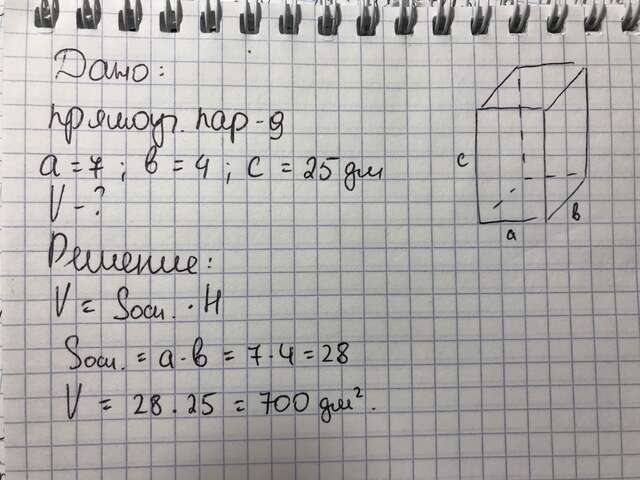 Дано:
прямоуг. пар-д
a = 7; в = 4; c = 25 дм
V - ?
Решение:
V = Sосн. · H
Sосн. = a · в = 7 · 4 = 28
V = 28 · 25 = 700 дм².
c
a
в